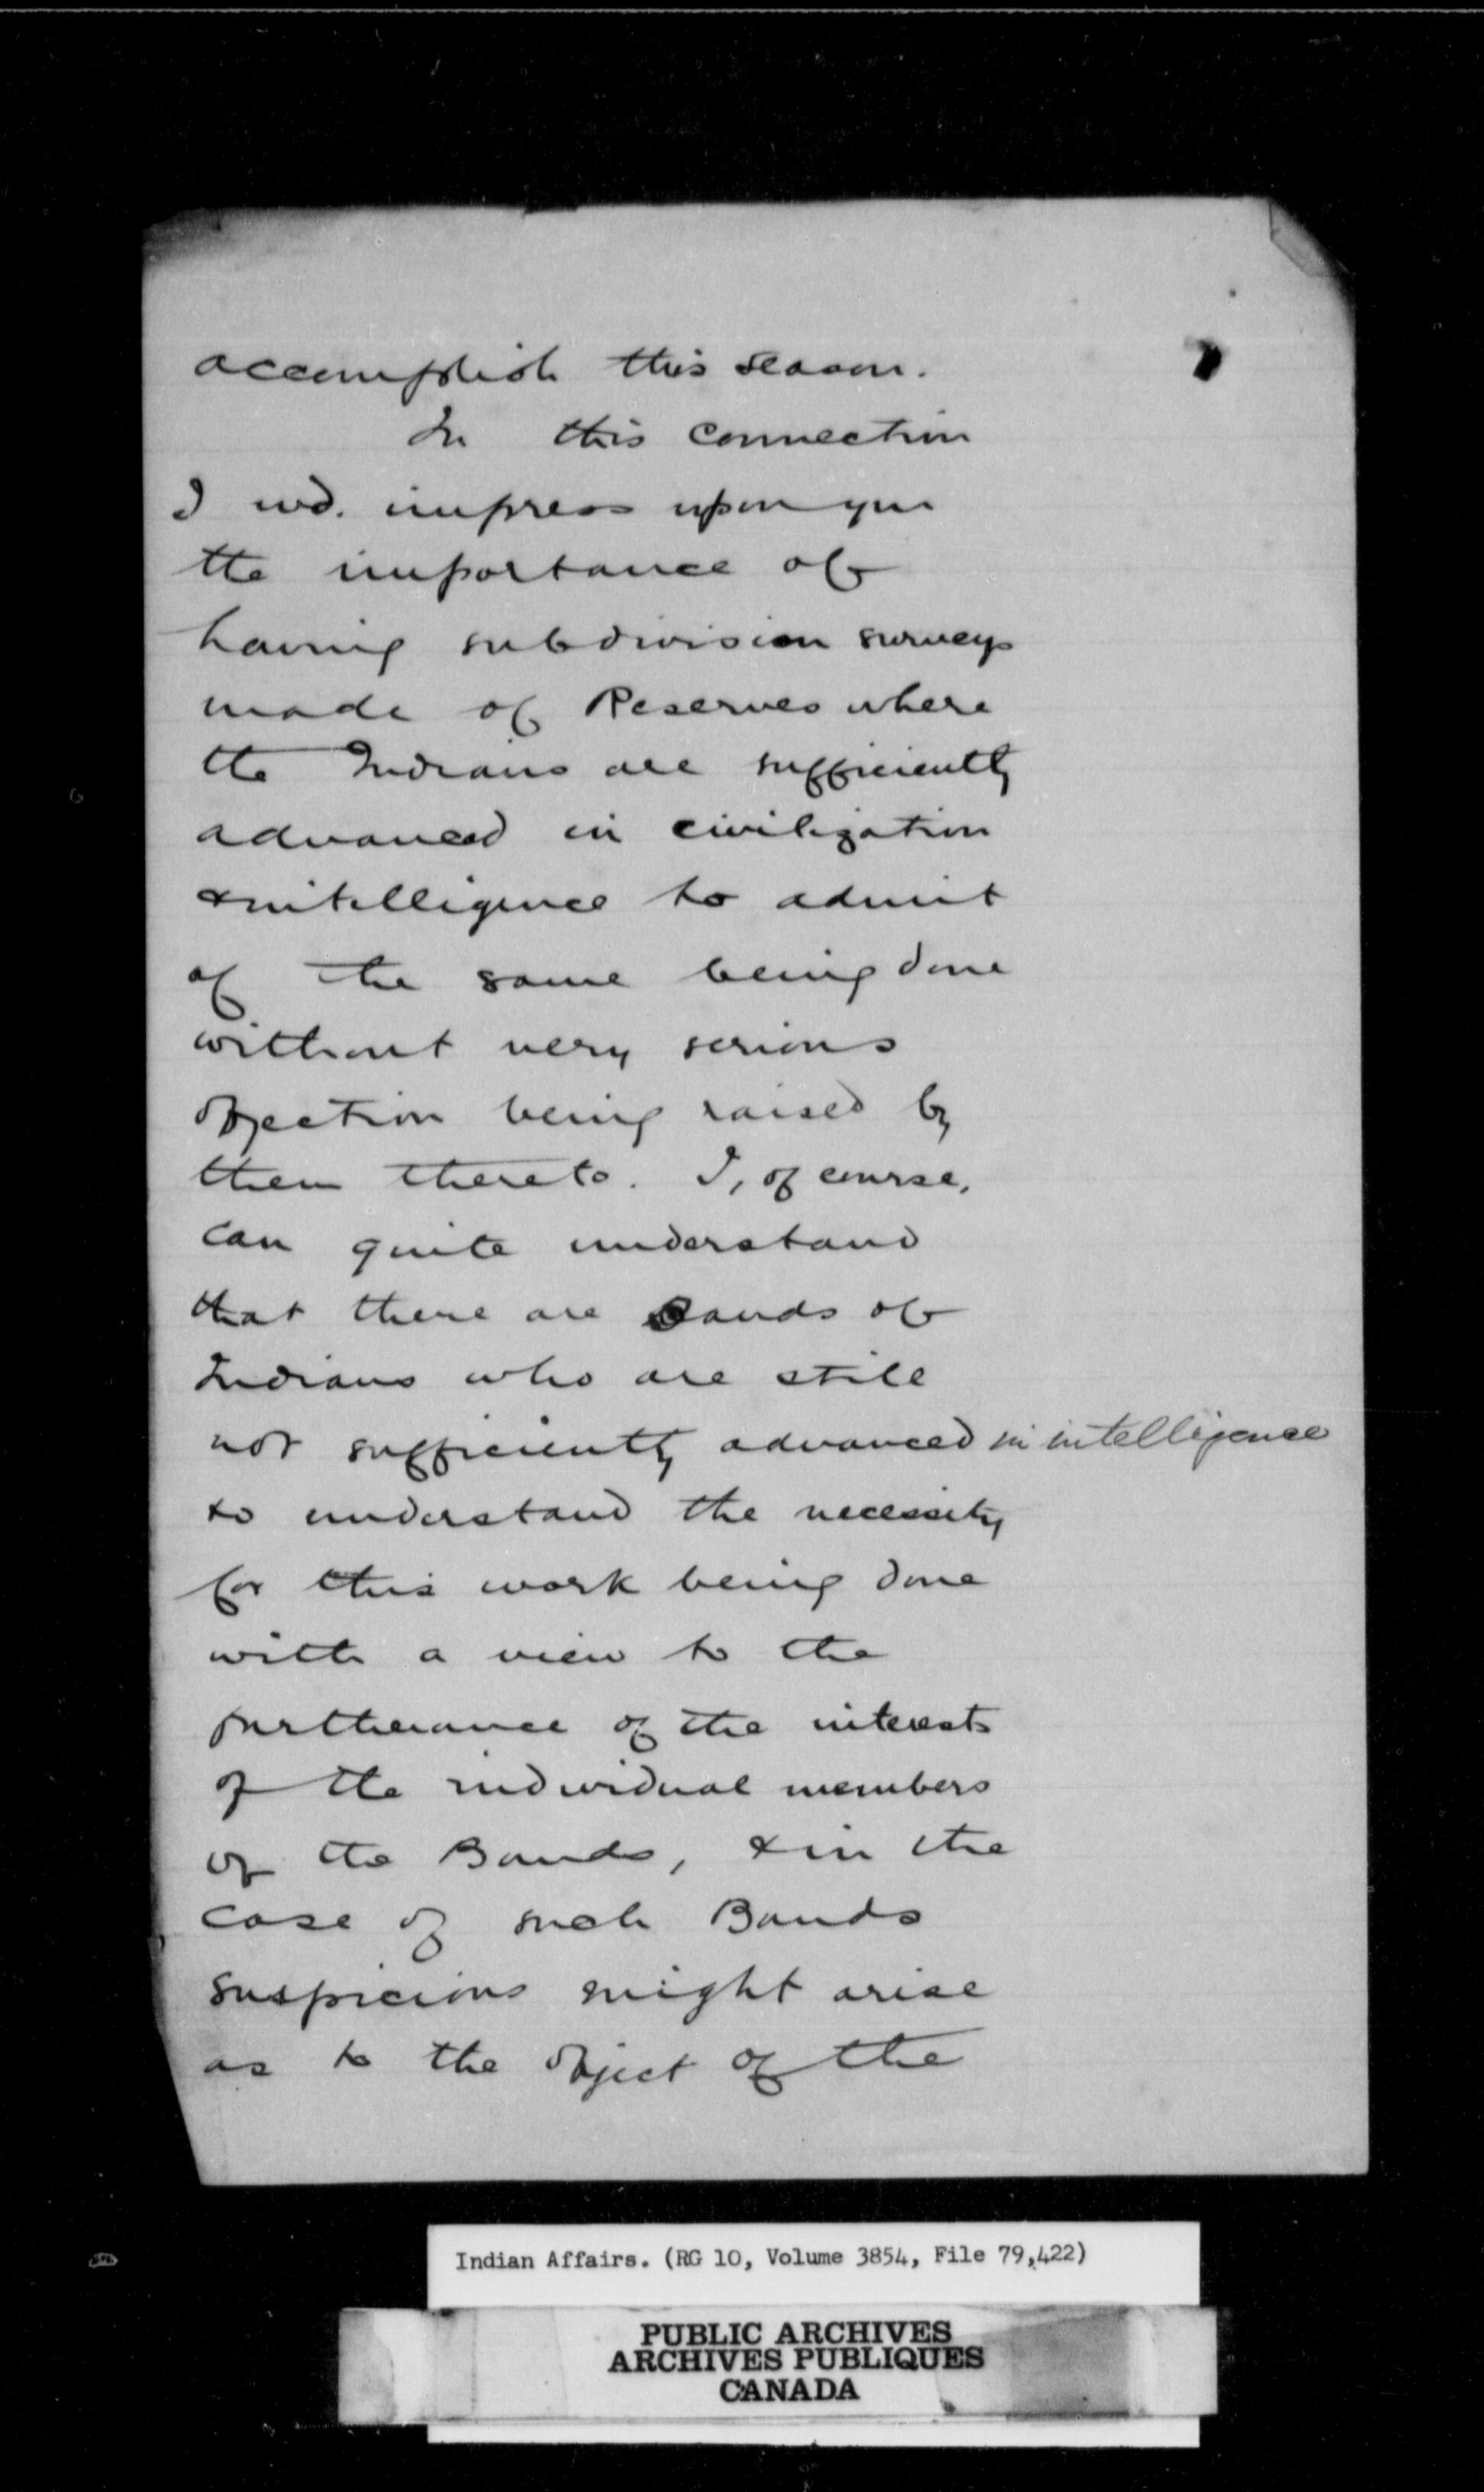 accomplish this season.
In this connection
I wd. impress upon you
the importance of
having subdivision surveys
made of Reserves where
the Indians are sufficiently
advanced in civilization
& intelligence to admit
of the same being done
without very serious
objection being raised by
them thereto. I, of course,
can quite understand
that there are Bands of
Indians who are still
not sufficiently advanced in intelligence
to understand the necessity
for this work being done
with a view to the
furtherance of the interests
of the individual members
of the Bands, & in the
case of such Bands
suspicions might arise
as to the object of the
Indian Affairs. (RG 10, Volume 3854, File 79,422)
PUBLIC ARCHIVES
ARCHIVES PUBLIQUES
CANADA